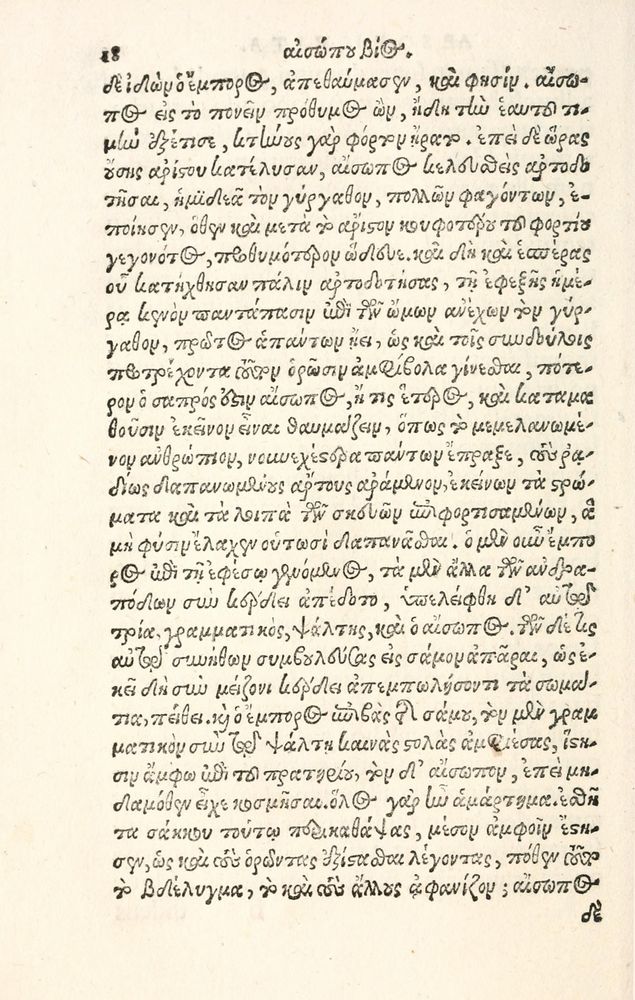 18 αἰσώπου βίος.
δὲ ἰδὼν ὁ ἔμπορος, ἀπεθαύμασεν, καὶ φησίν. αἴσω-
πος εἰς τὸ πονεῖν πρόθυμος ὢν, ἤδη τὴν ἑαυτοῦ τι-
μὴν ἐξέτισε, κτήνους γὰρ φόρτον ἦρατο. ἐπεὶ δὲ ὥρας
οὔσης ἀρίστου κατέλυσαν, αἴσωπος κελευσθεὶς ἀρτοδο-
τῆσαι, ἡμιδεᾶ τὸν γύργαθον, πολλῶν φαγόντων, ἐ-
ποίησεν, ὅθεν καὶ μετὰ τὸ ἄριστον κουφοτέρου τοῦ φορτίου
γεγονότος, προθυμότερον ὥδευε. καὶ δὴ καὶ ἑσπέρας
οὗ κατήχθησαν πάλιν ἀρτοδοτήσας, τῇ ἐφεξῆς ἡμέ-
ρᾳ κενὸν παντάπασιν ἐπὶ τῶν ὤμων ἀνέχων τὸν γύρ-
γαθον, πρῶτος ἁπάντων ᾔει, ὡς καὶ τοῖς συνδούλοις
προτρέχοντα τοῦτον ὁρῶσιν ἀμφίβολα γίνεσθαι, πότε-
ρον ὁ σαπρός ἐστιν αἴσωπος, ἤ τις ἕτερος, καὶ καταμα
θοῦσιν ἐκεῖνον εἶναι θαυμάζειν, ὅπως τὸ μεμελανωμέ-
νον ἀνθρώπιον, νουνεχέστερα πάντων ἔπραξε, τοὺς ῥᾳ-
δίως δαπανωμένους ἄρτους ἀράμενον, ἐκείνων τὰ στρώ-
ματα καὶ τὰ λοιπὰ τῶν σκευῶν ἐπιφορτισαμένων, ἃ
μὴ φύσιν ἔλαχεν οὑτωσὶ δαπανᾶσθαι. ὁ μὲν οὖν ἔμπο
ρος ἐπὶ τῇ ἐφέσῳ γενόμενος, τὰ μὲν ἄλλα τῶν ἀνδρα-
πόδων σὺν κέρδει ἀπέδοτο, ὑπελείφθη δ' αὐτῷ
τρία, γραμματικὸς, ψάλτης, καὶ ὁ αἴσωπος. τῶν δέ τις
αὐτῷ συνήθων συμβουλεύσας εἰς σάμον ἀπᾶραι, ὡς ἐ-
κεῖ δὴ σὺν μείζονι κέρδει ἀπεμπωλήσοντι τὰ σωμά-
τια, πείθει. κὴ ὁ ἔμπορος ἐπιβὰς τῆς σάμου, τὸν μὲν γραμ
ματικὸν σὺν τῷ ψάλτῃ καινὰς στολὰς ἀμφιέσας, ἵστη-
σιν ἄμφω ἐπὶ τοῦ πρατηρίου, τὸν δ' αἴσωπον, ἐπεὶ μη-
δαμόθεν εἶχε κοσμῆσαι. ὅλος γὰρ ἦν ἁμάρτημα. ἐσθῆ
τα σάκκου τούτῳ περικαθάψας, μέσον ἀμφοῖν ἔστη-
σεν, ὡς καὶ τοὺς ὁρῶντας ἐξίστασθαι λέγοντας, πόθεν τοῦτο
τὸ βδέλυγμα, τὸ καὶ τοὺς ἄλλους ἀφανίζον; αἴσωπος
δὲ